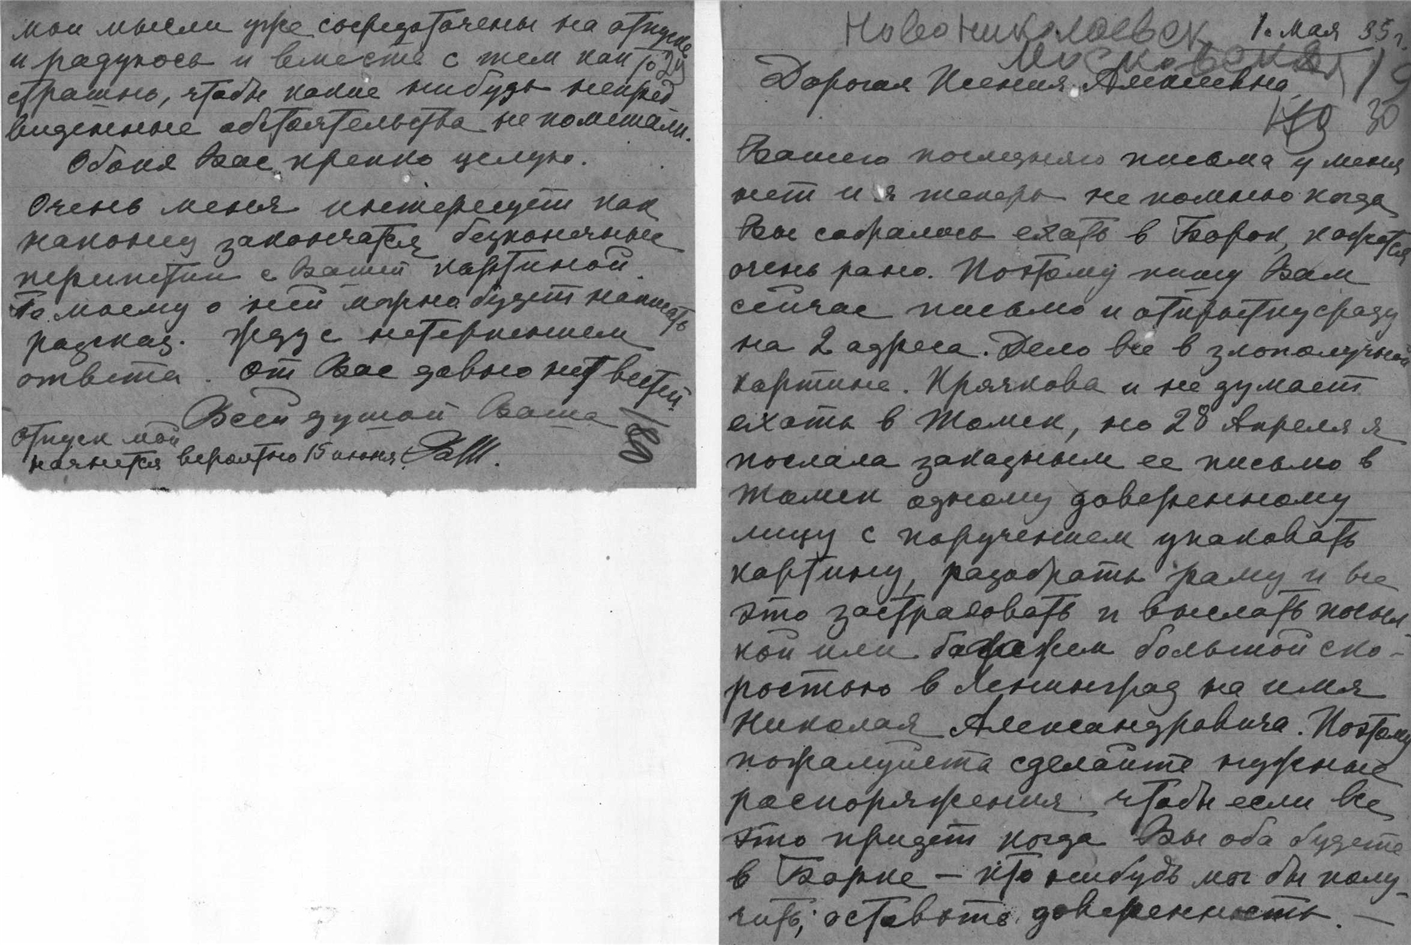 мои мысли уже сосредоточены на отпуске
и радуюсь и вместе с тем как то
страшно, чтобы какие нибудь непред
виденные обстоятельства не помешали.
Обоих Вас крепко целую.
Очень меня интересует как
наконец закончатся безконечные
перипетии с Вашей картиной.
По моему о ней можно будет написать
разсказ. Жду с нетерпением
ответа. От Вас давно нет вестей
Всей душой Ваша
отпуск мой
начнется вероятно 15 июня.
Новониколаевск
1. мая 35 г.
Московская
Дорогая Ксения Алексеевна
Вашего последнего письма у меня
нет и я теперь не помню когда
Вы собрались ехать в Борок, кажется
очень рано. Поэтому пишу Вам
сейчас письмо и открытку сразу
на 2 адреса. Дело все в злополучной
картине. Крячкова и не думает
ехать в Томск, но 28 Апреля я
послала заказным ее письмо в
Томск одному доверенному
лицу с поручением упаковать
картину, разобрать раму и все
это застраховать и выслать посыл-
кой или багажем большой ско-
ростью в Ленинград на имя
Николая Александровича. Поэтому
пожалуйста сделайте нужные
распоряжения чтобы если все
это придет когда Вы оба будете
в Борке — кто нибудь мог бы полу-
чить, оставьте доверенность. —